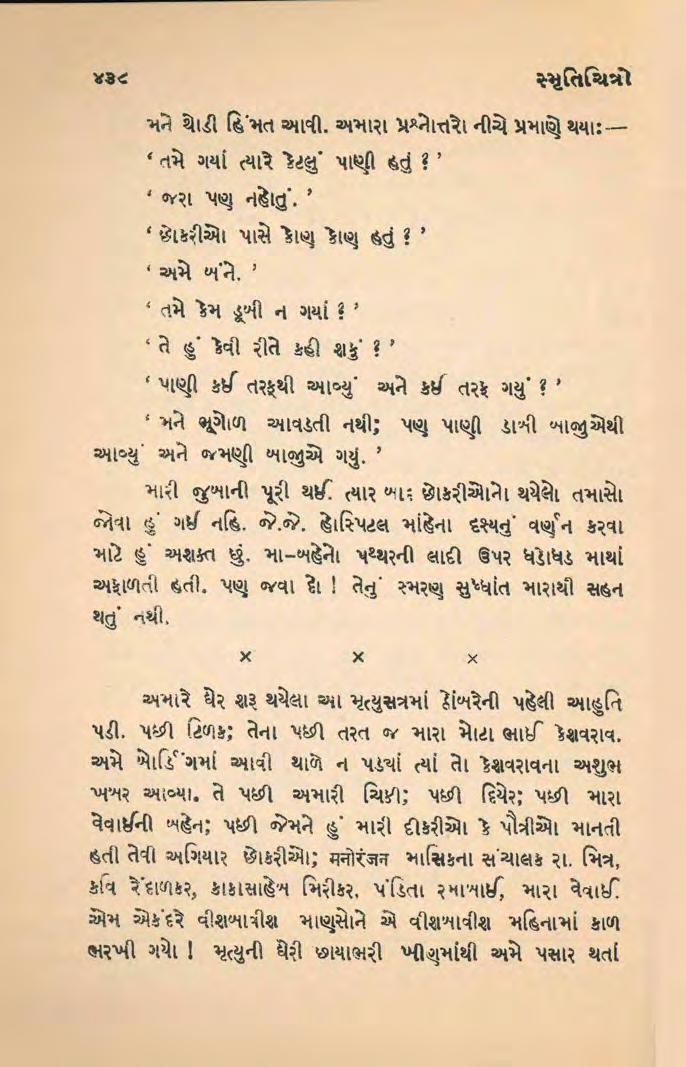 ૪૩૮ સ્મૃતિચિત્રો
મને થોડી હિંમત આવી. અમારા પ્રશ્નોત્તરો નીચે પ્રમાણે થયાઃ—
‘ તમે ગયાં ત્યારે કેટલું પાણી હતું ? ’
‘ જરા પણ નહોતું. ’
‘ છોકરીઓ પાસે કોણ કોણ હતું ? ’
‘ અમે બંને. ’
‘ તમે કેમ ડૂબી ન ગયાં ? ’
‘ તે હું કેવી રીતે કહી શકું ? ’
‘ પાણી કઈ તરફથી આવ્યું અને કઈ તરફ ગયું ? ’
‘ મને ભૂગોળ આવડતી નથી; પણ પાણી ડાબી બાજુએથી
આવ્યું અને જમણી બાજુએ ગયું. ’
મારી જુબાની પૂરી થઈ. ત્યાર બાદ છોકરીઓનો થયેલો તમાસો
જોવા હું ગઈ નહિ. જે.જે. હોસ્પિટલ માંહેના દશ્યનું વર્ણન કરવા
માટે હું અશક્ત છું. મા–બહેનો પથ્થરની લાદી ઉપર ધડોધડ માથાં
અફાળતી હતી. પણ જવા દો ! તેનું સ્મરણ સુધ્ધાંત મારાથી સહન
થતું નથી.
× × ×
અમારે ઘેર શરૂ થયેલા આ મૃત્યુસત્રમાં ઠોંબરેની પહેલી આહુતિ
પડી. પછી ટિળક; તેના પછી તરત જ મારા મોટા ભાઈ કેશવરાવ.
અમે બોર્ડિંગમાં આવી થાળે ન પડ્યાં ત્યાં તો કેશવરાવના અશુભ
ખબર આવ્યા. તે પછી અમારી ચિકી; પછી દિયેર; પછી મારા
વેવાઈની બહેન; પછી જેમને હું મારી દીકરીઓ કે પૌત્રીઓ માનતી
હતી તેવી અગિયાર છોકરીઓ; मनोरंजन માસિકના સંચાલક રા. મિત્ર,
કવિ રેંદાળકર, કાકાસાહેબ મિરીકર, પંડિતા રમાબાઈ, મારા વેવાઈ.
એમ એકંદરે વીશબાવીશ માણસોને એ વીશબાવીશ મહિનામાં કાળ
ભરખી ગયો ! મૃત્યુની ઘેરી છાયાભરી ખીણમાંથી અમે પસાર થતાં